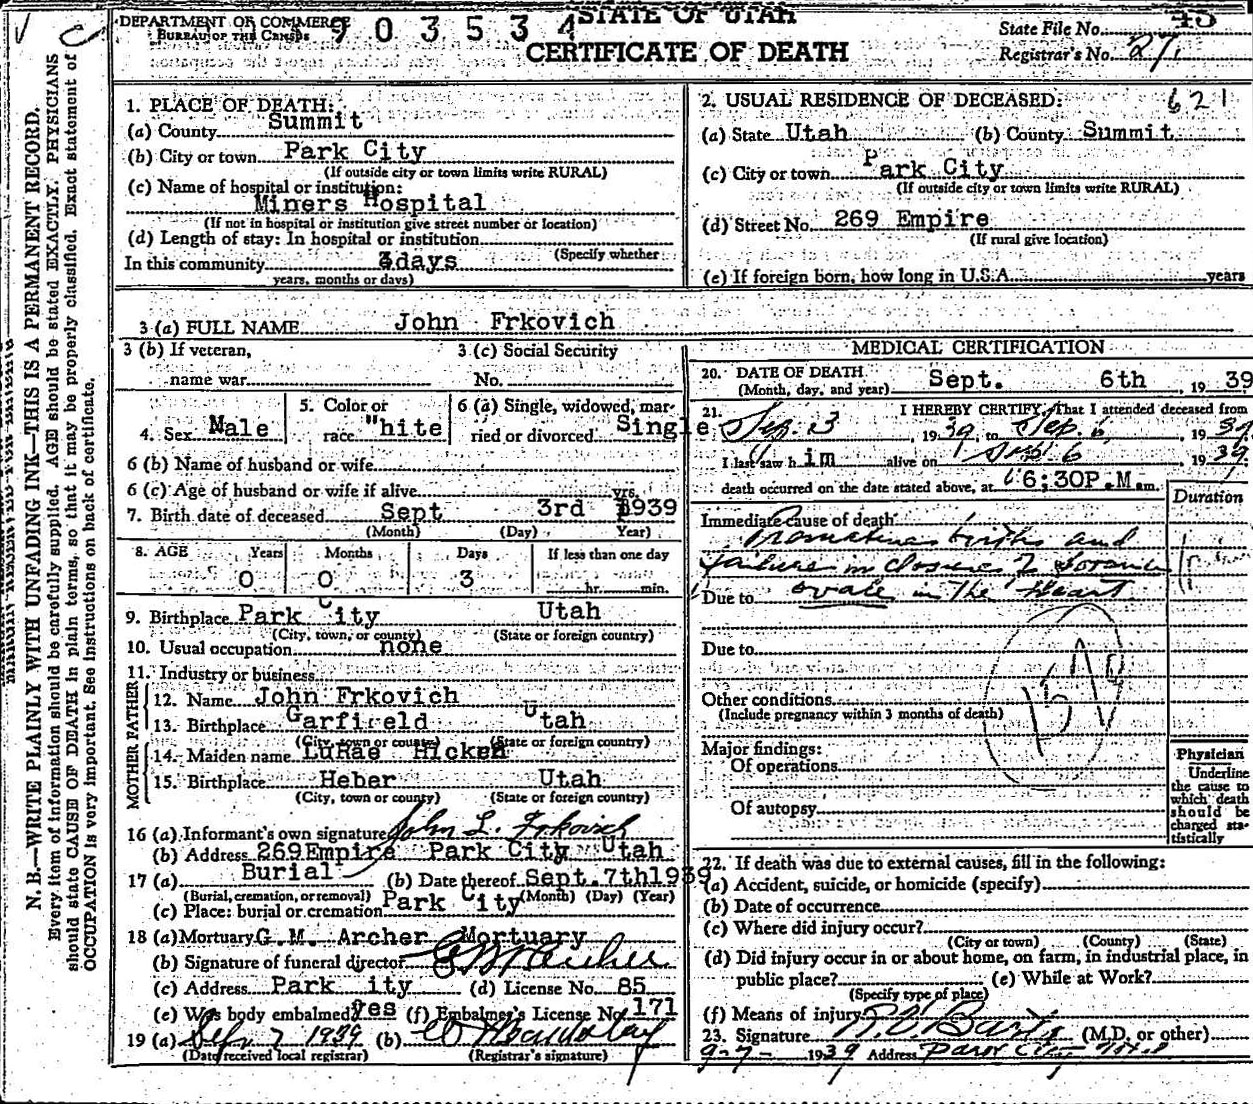 DEPARTMENT OF COMMERCE
BUREAU OF THE CENSUS
9 0 3 5 3 4
STATE OF UTAH
CERTIFICATE OF DEATH
State File No. 45
Registrar's No. 27
621
N. B.—WRITE PLAINLY WITH UNFADING INK—THIS IS A PERMANENT RECORD.
Every item of information should be carefully supplied. AGE should be stated EXACTLY. PHYSICIANS
should state CAUSE OF DEATH in plain terms, so that it may be properly classified. Exact statement of
OCCUPATION is very important. See instructions on back of certificate.
1. PLACE OF DEATH:
(a) County Summit
(b) City or town Park City
(If outside city or town limits write RURAL)
(c) Name of hospital or institution:
Miners Hospital
(If not in hospital or institution give street number or location)
(d) Length of stay: In hospital or institution
(Specify whether
In this community 3days
years, months or days)
2. USUAL RESIDENCE OF DECEASED:
(a) State Utah (b) County Summit
(c) City or town Park City
(If outside city or town limits write RURAL)
(d) Street No. 269 Empire
(If rural give location)
(e) If foreign born, how long in U.S.A. years
3 (a) FULL NAME John Frkovich
3 (b) If veteran,
name war
3 (c) Social Security
No.
4. Sex Male
5. Color or
race "hite
6 (a) Single, widowed, mar-
ried or divorced Single
6 (b) Name of husband or wife
6 (c) Age of husband or wife if alive yrs.
7. Birth date of deceased Sept 3rd 1939
(Month) (Day) Year)
8. AGE Years Months Days If less than one day
0 0 3 hr. min.
9. Birthplace Park City Utah
(City, town, or county) (State or foreign country)
10. Usual occupation none
11. Industry or business
FATHER
12. Name John Frkovich
13. Birthplace Garfield Utah
(City, town or county) (State or foreign country)
MOTHER
14. Maiden name LuRae Hicken
15. Birthplace Heber Utah
(City, town or county) (State or foreign country)
16 (a) Informant's own signature John L. Frkovich
(b) Address 269Empire Park City Utah
17 (a) Burial (b) Date thereof Sept.7th1939
(Burial, cremation, or removal) (Month) (Day) (Year)
(c) Place: burial or cremation Park City
18 (a) Mortuary G.M. Archer Mortuary
(b) Signature of funeral director
(c) Address Park ity (d) License No. 85
(e) Was body embalmed? yes (f) Embalmer's License No. 171
19 (a) Sep 7 1939 (b)
(Date received local registrar) (Registrar's signature)
MEDICAL CERTIFICATION
20. DATE OF DEATH
(Month, day, and year) Sept. 6th, 1939
21. I HEREBY CERTIFY, That I attended deceased from
Sep. 3, 1939, to Sep. 6, 1939
I last saw h im alive on Sept 6 1939
death occurred on the date stated above, at 6:30P.M m.
Duration
Immediate cause of death
Premature births and
failure in closure of foramen
Due to ovale in the Heart
Due to
Other conditions
(Include pregnancy within 3 months of death)
Major findings:
Of operations
Of autopsy
Physician
Underline
the cause to
which death
should be
charged sta-
tistically
22. If death was due to external causes, fill in the following:
(a) Accident, suicide, or homicide (specify)
(b) Date of occurrence
(c) Where did injury occur?
(City or town) (County) (State)
(d) Did injury occur in or about home, on farm, in industrial place, in
public place? (e) While at Work?
(Specify type of place)
(f) Means of injury
23. Signature (M.D. or other)
9-7- 1939 Address Park City, Utah